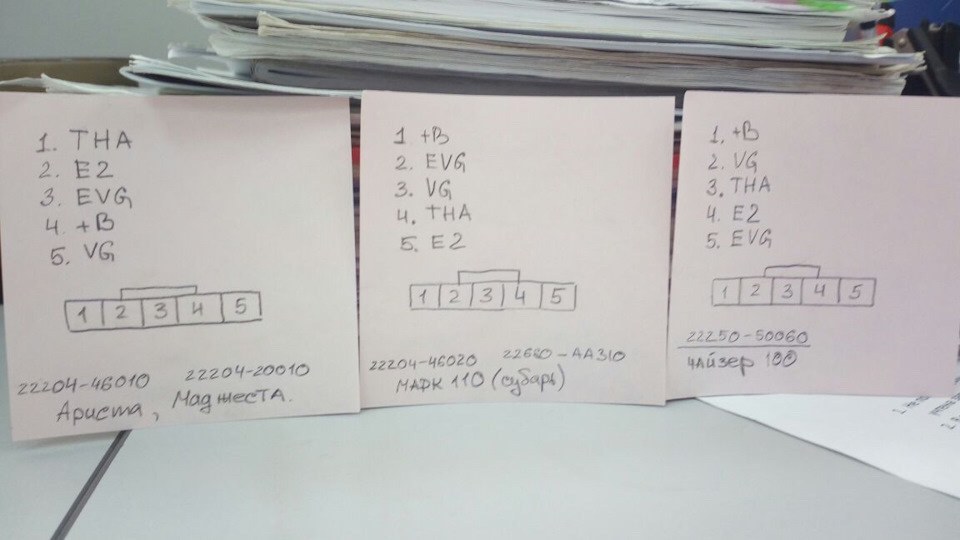 1. THA
2. E2
3. EVG
4. +B
5. VG
1 2 3 4 5
22204-46010 22204-20010
Ариста, Маджеста.
1 +B
2. EVG
3. VG
4. THA
5. E2
1 2 3 4 5
22204-46020 22680-AA310
МАРК 110 (субарь)
1. +B
2. VG
3. THA
4. E2
5. EVG
1 2 3 4 5
22250-50060
чайзер 100